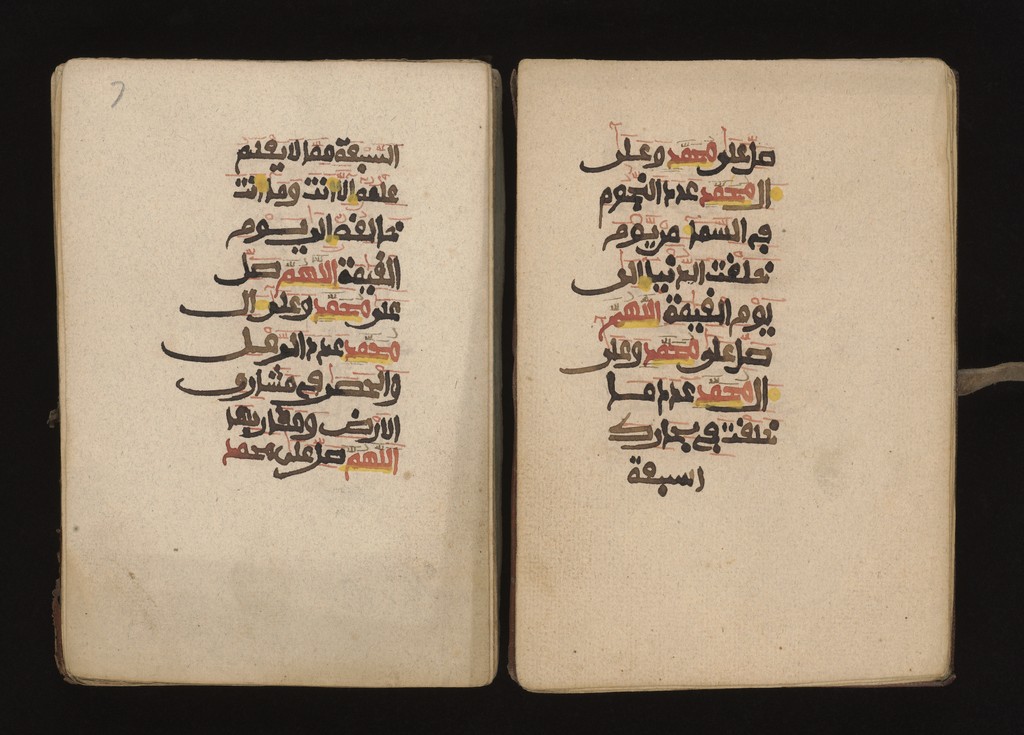 صل على محمد وعلى
ال محمد عدد النجوم
في السما من يوم
خلفت الدنيا الى
يوم القيمة اللهم
صل على محمد وعلى
ال محمد عدد ما
خلفت في بحارك
السبعة
السبعة مما لا يعلم
علمه الا انت وما انت
خالفه الى يوم
القيمة اللهم صل
على محمد وعلى ال
محمد عدد الرمل
والحصى في مشارق
الارض ومغاربها
اللهم صل على محمد